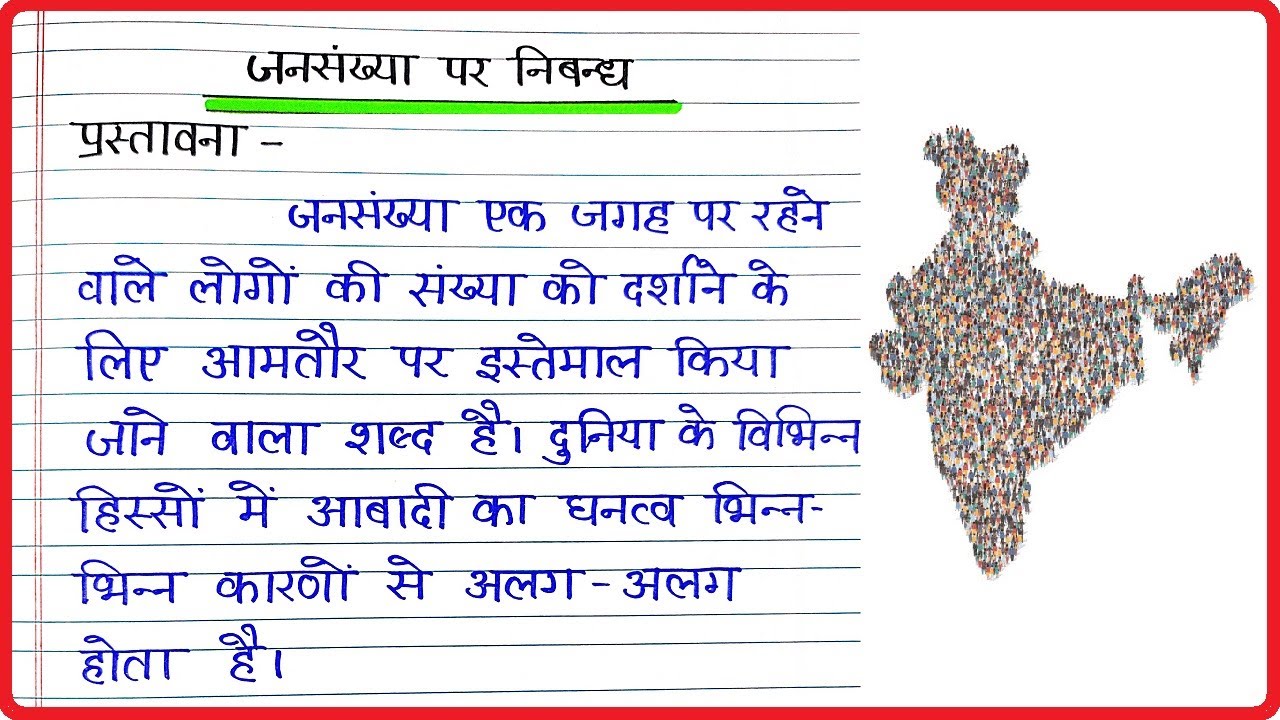 जनसंख्या पर निबन्ध
प्रस्तावना -
जनसंख्या एक जगह पर रहने
वाले लोगों की संख्या को दर्शाने के
लिए आमतौर पर इस्तेमाल किया
जाने वाला शब्द है। दुनिया के विभिन्न
हिस्सों में आबादी का घनत्व भिन्न-
भिन्न कारणों से अलग-अलग
होता है।